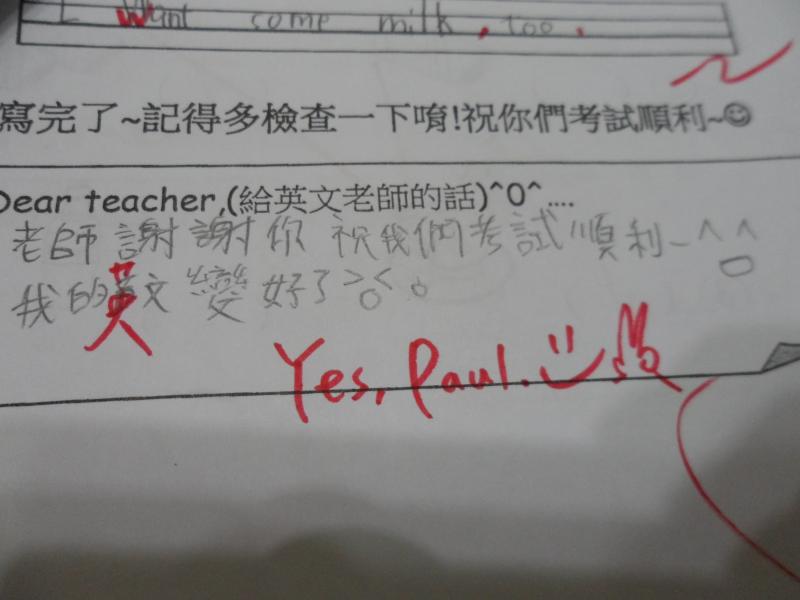 I want some milk, too.
寫完了~記得多檢查一下唷!祝你們考試順利~☺
Dear teacher,(給英文老師的話)^0^....
老師謝謝你 祝我們考試順利~^口^
我的英文變好了>o<。
英
Yes, Paul.